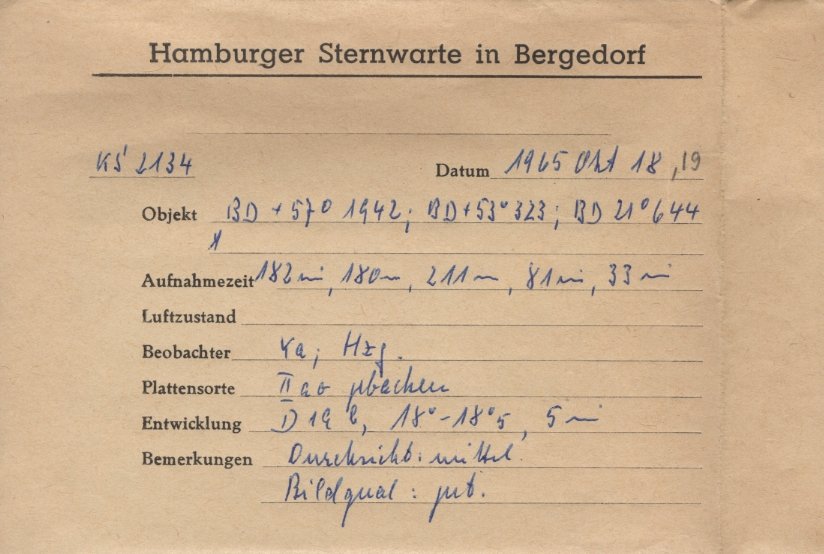 Hamburger Sternwarte in Bergedorf
KS 2134
Datum 1965 Okt 18,19
Objekt BD +57° 1942; BD+53° 323; BD 21° 644
Aufnahmezeit 182 min, 180m, 211m, 81min, 33 min
Luftzustand
Beobachter Ka; Hzg.
Plattensorte IIao gebacken
Entwicklung D19b, 18°-18°5, 5 min
Bemerkungen Durchsicht: mittel.
Bildqual: gut.